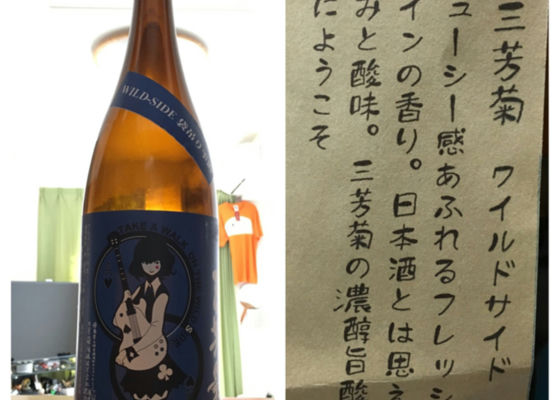 WILD-SIDE 袋吊り
TAKE A WALK ON THE WILD SIDE
三芳菊 ワイルドサイド
ューシー感あふれるフレッシ
インの香り。日本酒とは思え
みと酸味。三芳菊の濃醇旨酸
にようこそ